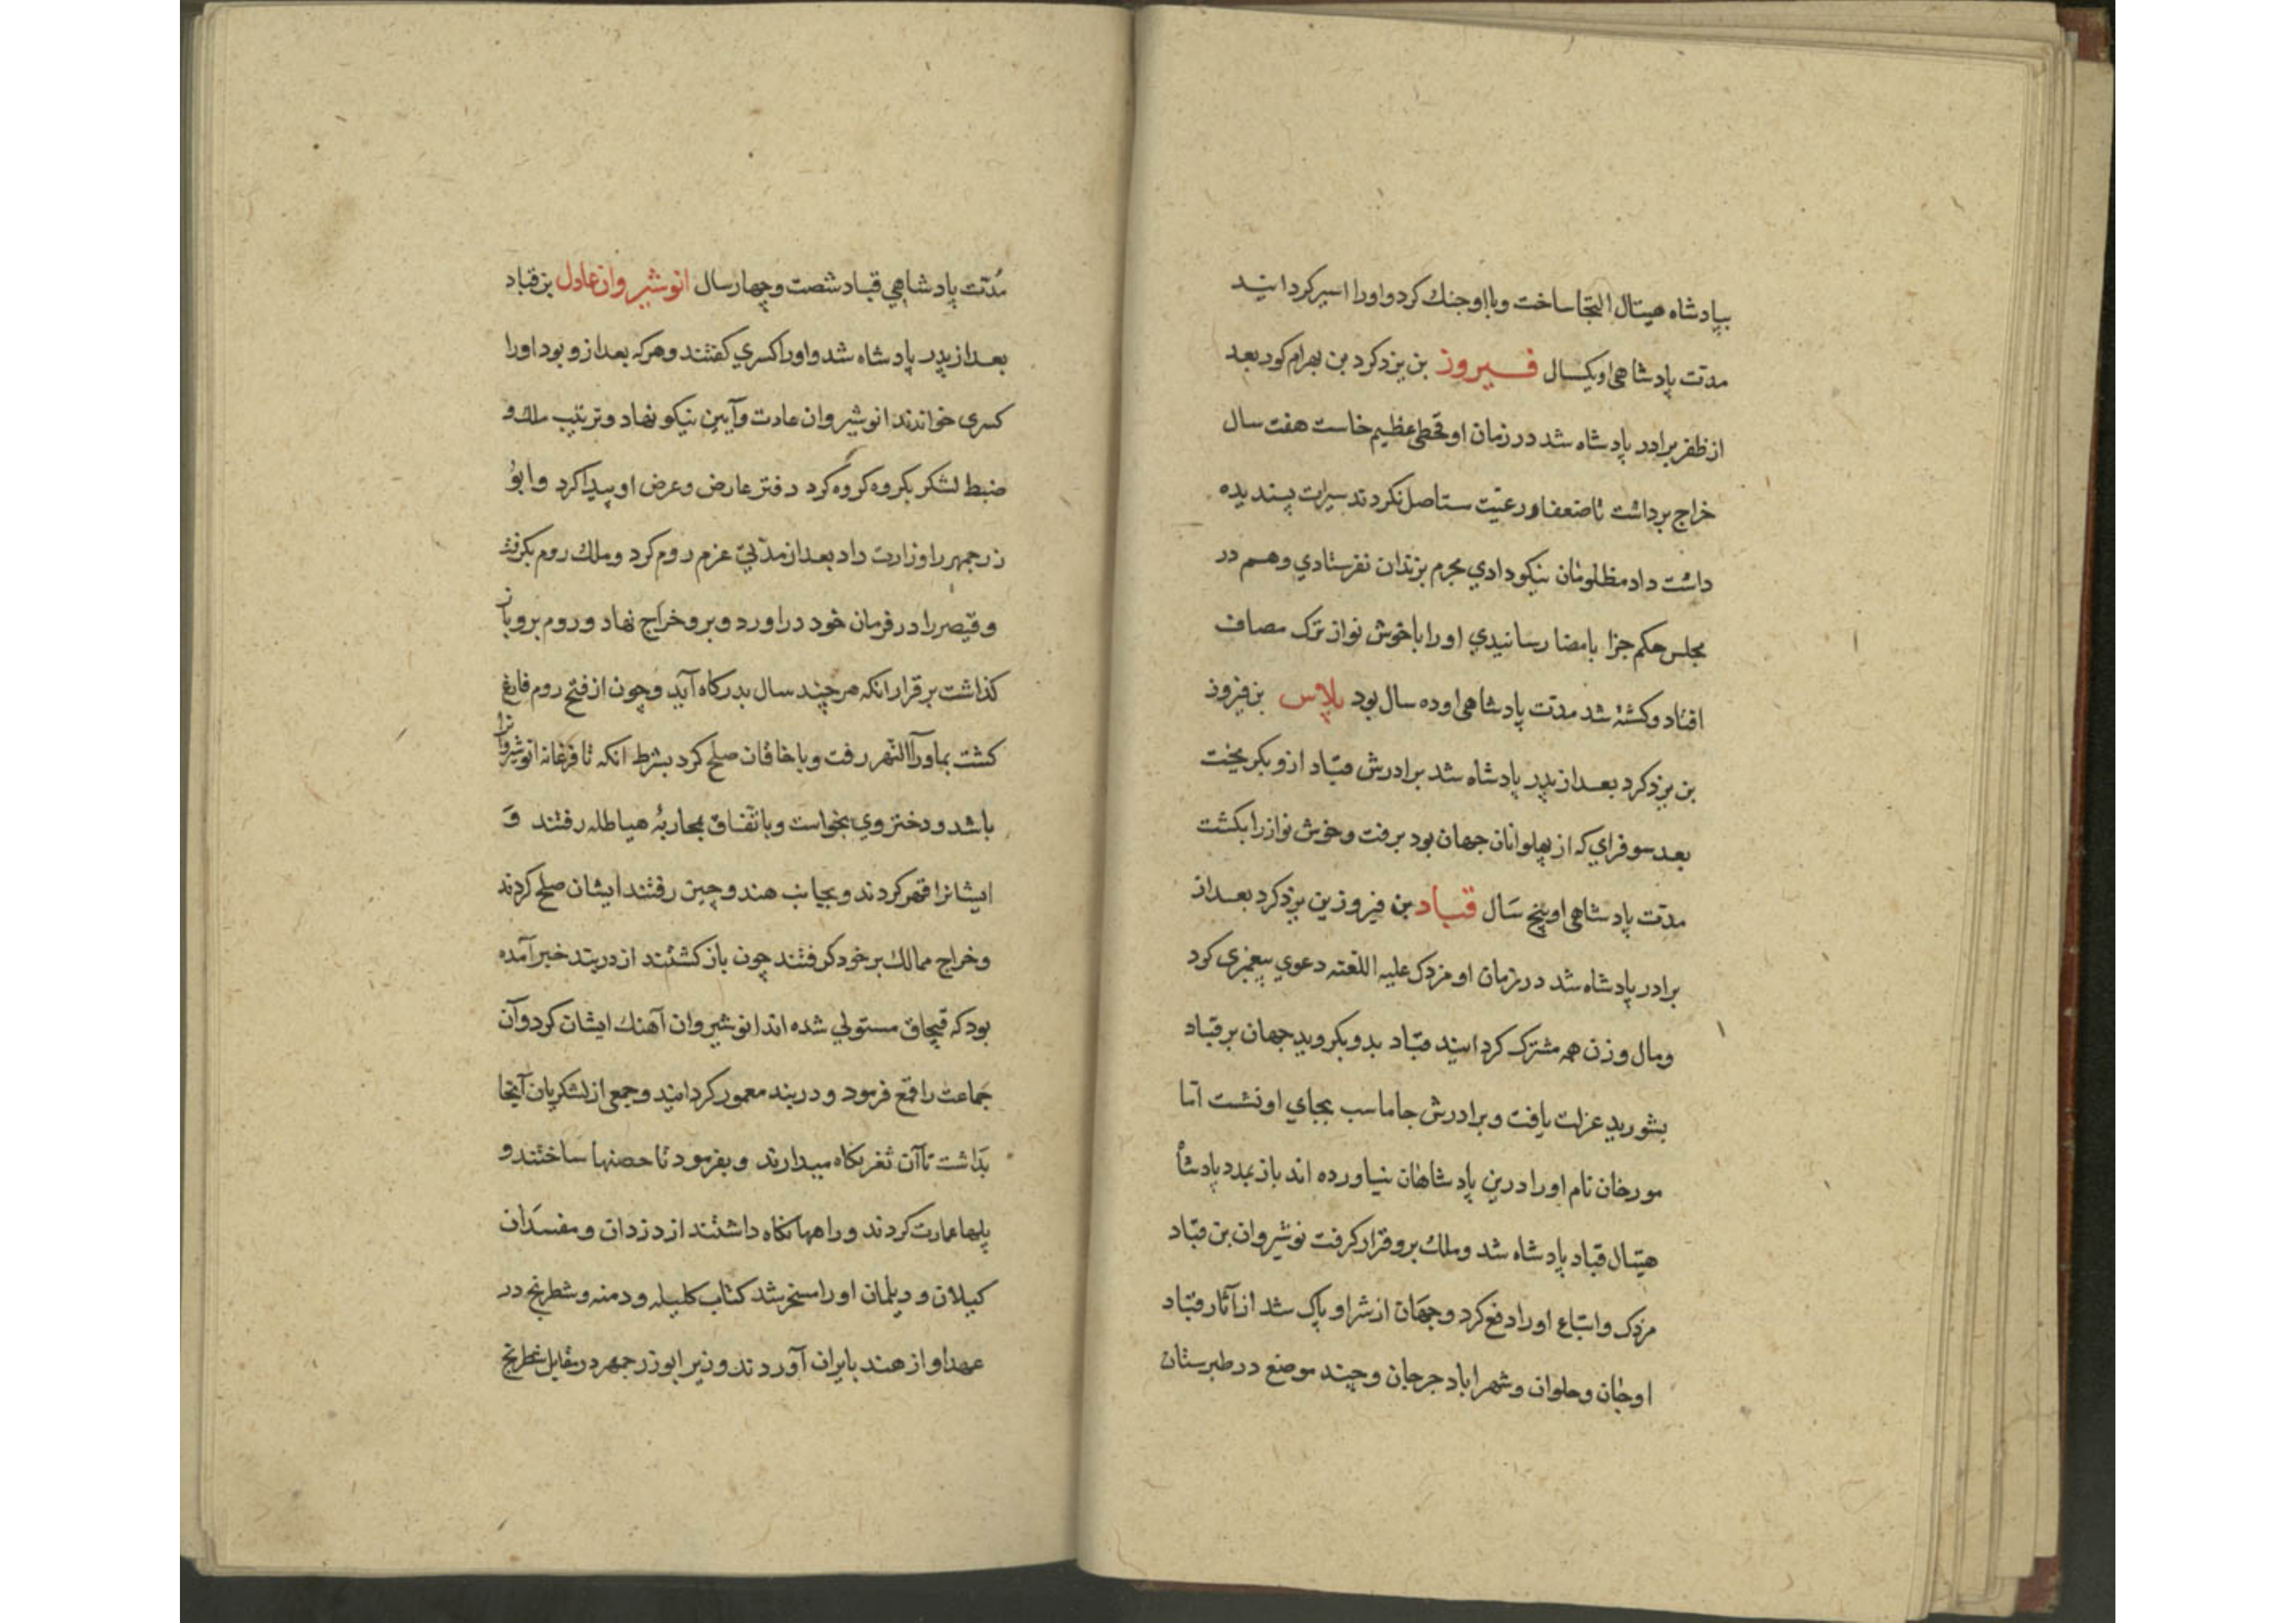 بپادشاه هیتال التجا ساخت و با او جنك كرد و اورا اسیر كردانید
مدت پادشاهی او یكسال فیروز بن یزد كرد بن بهرام كور بعد
از ظفر برادر پادشاه شد در زمان او قحطی عظیم خاست هفت سال
خراج برداشت تا ضعفا و رعیّت ستاصل نكردند سیرت پسندیده
داشت داد مظلومان نیكو دادی مجرم بزندان نفرستادی و هم در
مجلس حكم جزا بامضا رسانیدی اورا با خوش نواز ترك مصاف
افتاد و كشته شد مدت پادشاهی او ده سال بود پلاس بن فیروز
بن یزد كرد بعد از پدر پادشاه شد برادرش قباد ازو بكریخت
بعد سوفرای كه از پهلوانان جهان بود برفت و خوش نواز را بكشت
مدّت پادشاهی او پنج سال قباد بن فیروز بن یزد كرد بعد از
برادر پادشاه شد در زمان او مزدك علیه اللعنه دعوی پیغمبری كرد
و مال و زن همه مشترك كردانید قباد بدو بكروید جهان بر قباد
بشورید عزلت یافت و برادرش جاماسب بجای او نشست اما
مورخان نام اورا درین پادشاهان نیاورده اند باز بمدد پادشاه
هیتال قباد پادشاه شد و ملك برو قرار كرفت نوشیروان بن قباد
مزدك و اتباع اورا دفع كرد و جهان از شر او پاك شد از آثار قباد
اوجان و حلوان و شهراباد جرجان و چند موضع در طبرستان
مُدّت پادشاهی قباد شصت و چهار سال انوشیروان عادل بن قباد
بعد از پدر پادشاه شد و اورا كسری كفتند و هر كه بعد ازو بود اورا
كسری خواندند انوشیروان عادت و آیین نیكو نهاد و ترتیب ملك و
ضبط لشكر بكروه كروه كرد دفتر عارض و عرض او پیدا كرد و ابو
زرجمهر را وزارت داد بعد از مدّتی عزم روم كرد و ملك روم بكرفت
و قیصر را در فرمان خود در اورد و برو خراج نهاد و روم برو باز
كذاشت بر قرار انكه هر چند سال بدركاه آید و چون از فتح روم فارغ
كشت بماورآالنّهر رفت و با خاقان صلح كرد بشرط انكه تا فرغانه انوشیروانرا
باشد و دختر وی بخواست و باتّفاق بمحاربهٔ هیاطله رفتند و
ایشانرا قهر كردند و بجانب هند و چین رفتند ایشان صلح كردند
و خراج ممالك بر خود كرفتند چون باز كشتند از دربند خبر آمده
بود كه قپچاق مستولی شده اند انوشیروان آهنك ایشان كرد و آن
جماعت را قمع فرمود و دربند معمور كردانید و جمعی از لشكریان آنجا
بداشت تا آن ثغر نكاه میدارند و بفرمود تا حصنها ساختند و
پلها عمارت كردند و راهها نكاه داشتند از دزدان و مفسدان
كیلان و دیلمان اورا مسخر شد كتاب كلیله و دمنه و شطرنج در
عهد او از هند بایران آوردند وزیر ابوزرجمهر در مقابل شطرنج